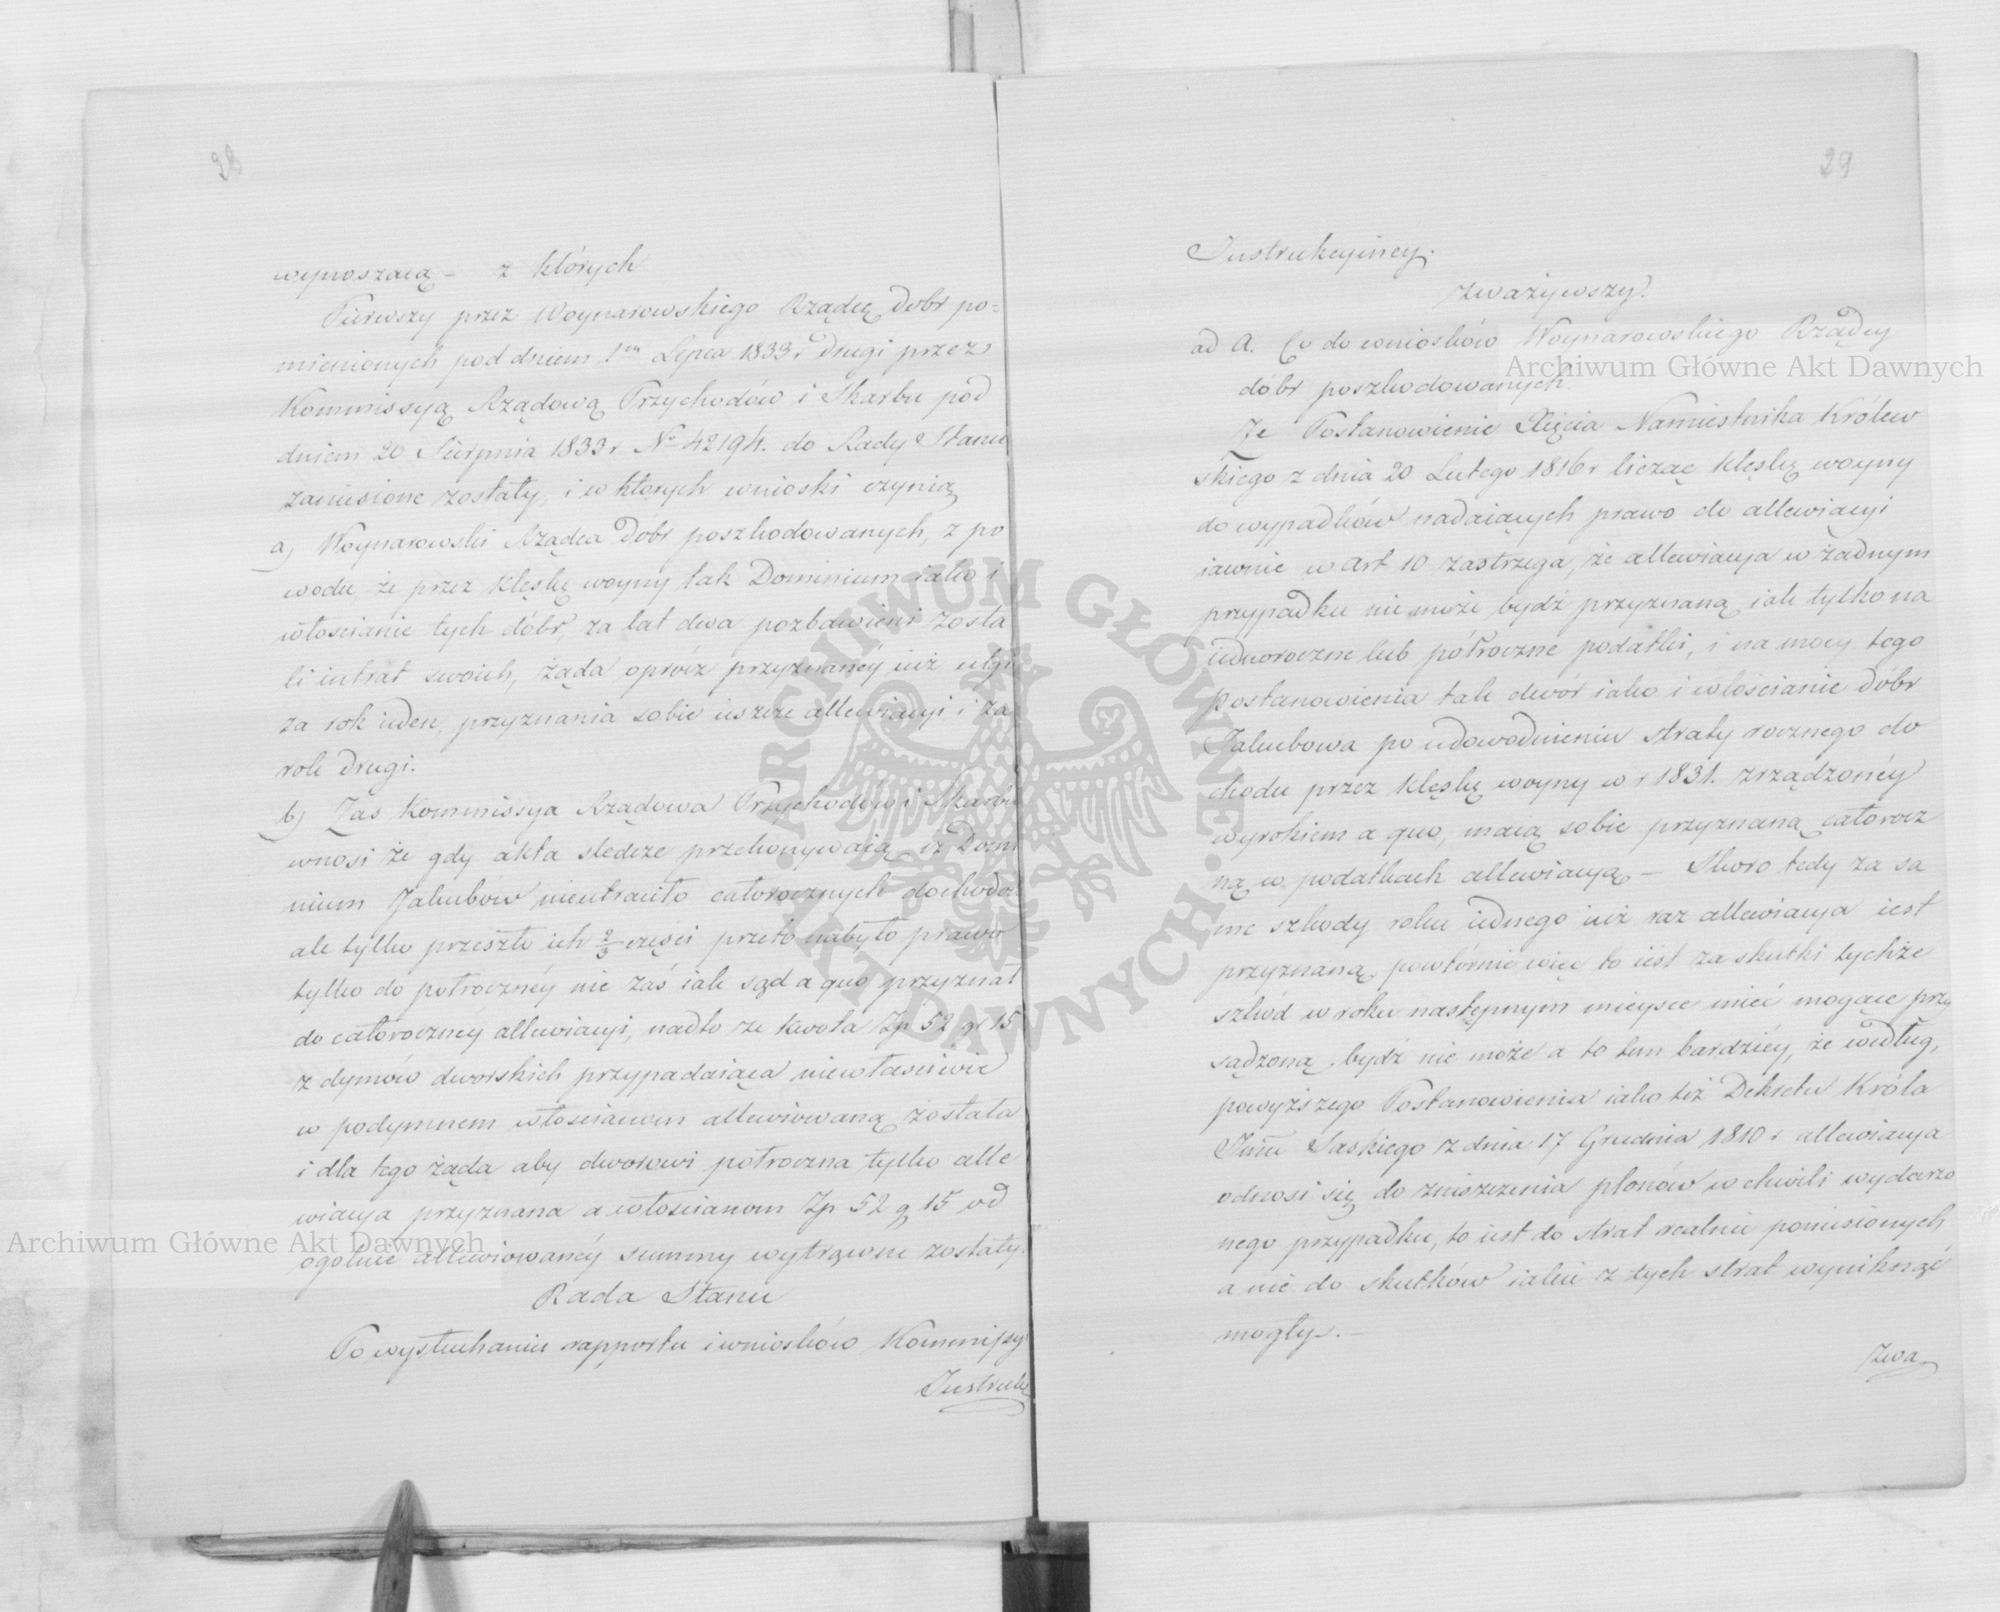 28
wynoszącą – z których
Pierwszy przez Woynarowskiego Rządcę Dobr po=
mienionych pod dniem 1ᵐ Lipca 1833 r Drugi przez
Kommissyą Rządową Przychodów i Skarbu pod
dniem 20 Sierpnia 1833 r Nº 42194. do Rady Stanu
zaniesione zostały, i w których wnioski czynią
a) Woynarowski Rządca Dobr poszkodowanych, z po
wodu, że przez klęskę woyny tak Dominium iako i
włościanie tych dóbr, za lat dwa pozbawieni zosta
li intrat swoich, żąda oprócz przyznanéy iuż ulgi
za rok ieden, przyznania sobie ieszcze allewiacyi i za
rok drugi.
b) Zas Kommissya Rządowa Przychodow i Skarbu
wnosi że gdy akta sledcze przekonywaią iż Domi
nium Jakubów nieutraciło całorocznych dochodow
ale tylko przeszło ich 2/3 części przeto nabyło prawo
tylko do potrocznéy nie zaś iak sąd a quo przyznał
do całorocznéy allewiacyi, nadto ze kwota Zp 52 gr 15
z dymów dworskich przypadaiąca niewłasciwie
w podymnem włoscianom allewiowaną została
i dla tego żąda aby dworowi potroczna tylko alle
wiacya przyznana a włościanom Zp 52 g 15 od
ogolnie allewiowanéy summy wytrącone zostały.
Rada Stanu
Po wysłuchaniu rapportu i wniosków Kommissyi
Instrukc
29
Instrukcyiney.
Zważywszy.
ad A. Co do wniosków Woynarowskiego Rządcy
dóbr poszkodowanych.
Ze Postanowienie Xięcia Namiestnika Królew
skiego z dnia 20 Lutego 1816 r licząc klęskę woyny
do wypadków nadaiących prawo do allewiacyi
iawnie w Art 10 zastrzega, że allewiacya w żadnym
przypadku nie może bydź przyznaną iak tylko na
iednoroczne lub półroczne podatki, i na mocy tego
postanowienia tak dwór iako i włościanie dóbr
Jakubowa po udowodnieniu straty rocznego do
chodu przez klęskę woyny w r 1831. zrządzonéy
wyrokiem a quo, maią sobie przyznaną całorocz
ną w podatkach allewiacyą – Skoro tedy za sa
me szkody roku iednego iuż raz allewiacya iest
przyznaną, powtórnie więc to iest za skutki tychże
szkód w roku następnym mieysce mieć mogące przy
sądzoną bydź nie może a to tem bardziéy, że według,
powyższego Postanowienia iako też Dekretu Króla
Jmci Saskiego z dnia 17 Grudnia 1810 r allewiacya
odnosi się do zniszczenia plonów w chwili wydarzo
nego przypadku, to iest do strat realnie poniesionych
a nie do skutków iakie z tych strat wyniknąć
mogły. –
Zwa
Archiwum Główne Akt Dawnych
Archiwum Główne Akt Dawnych
ARCHIWUM GŁÓWNE AKT DAWNYCH